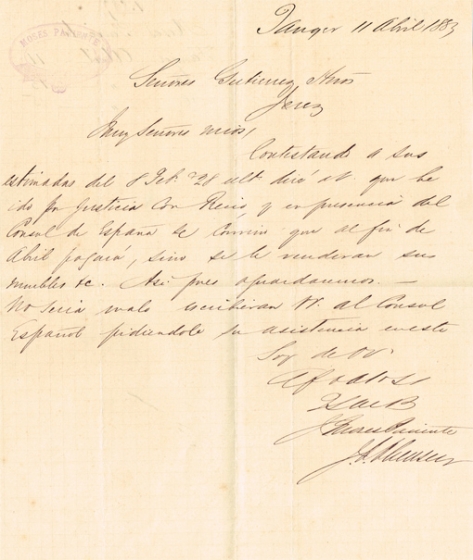 Tanger 11 Abril 1883
Señores Gutierrez Hnos
Jerez
Muy Señores mios,
Contestando a sus
estimadas del 8 Feb. 28 ult diré a V. que he
ido por Justicia con y en presencia del
Consul de España se convino que al fin de
Abril pagará, sino se le venderan sus
muebles &c. Asi pues aguardaremos. —
No seria malo escribieran VV. al Consul
Español pidiendole su asistencia en este
Soy de VV.
Afmo
QSMB